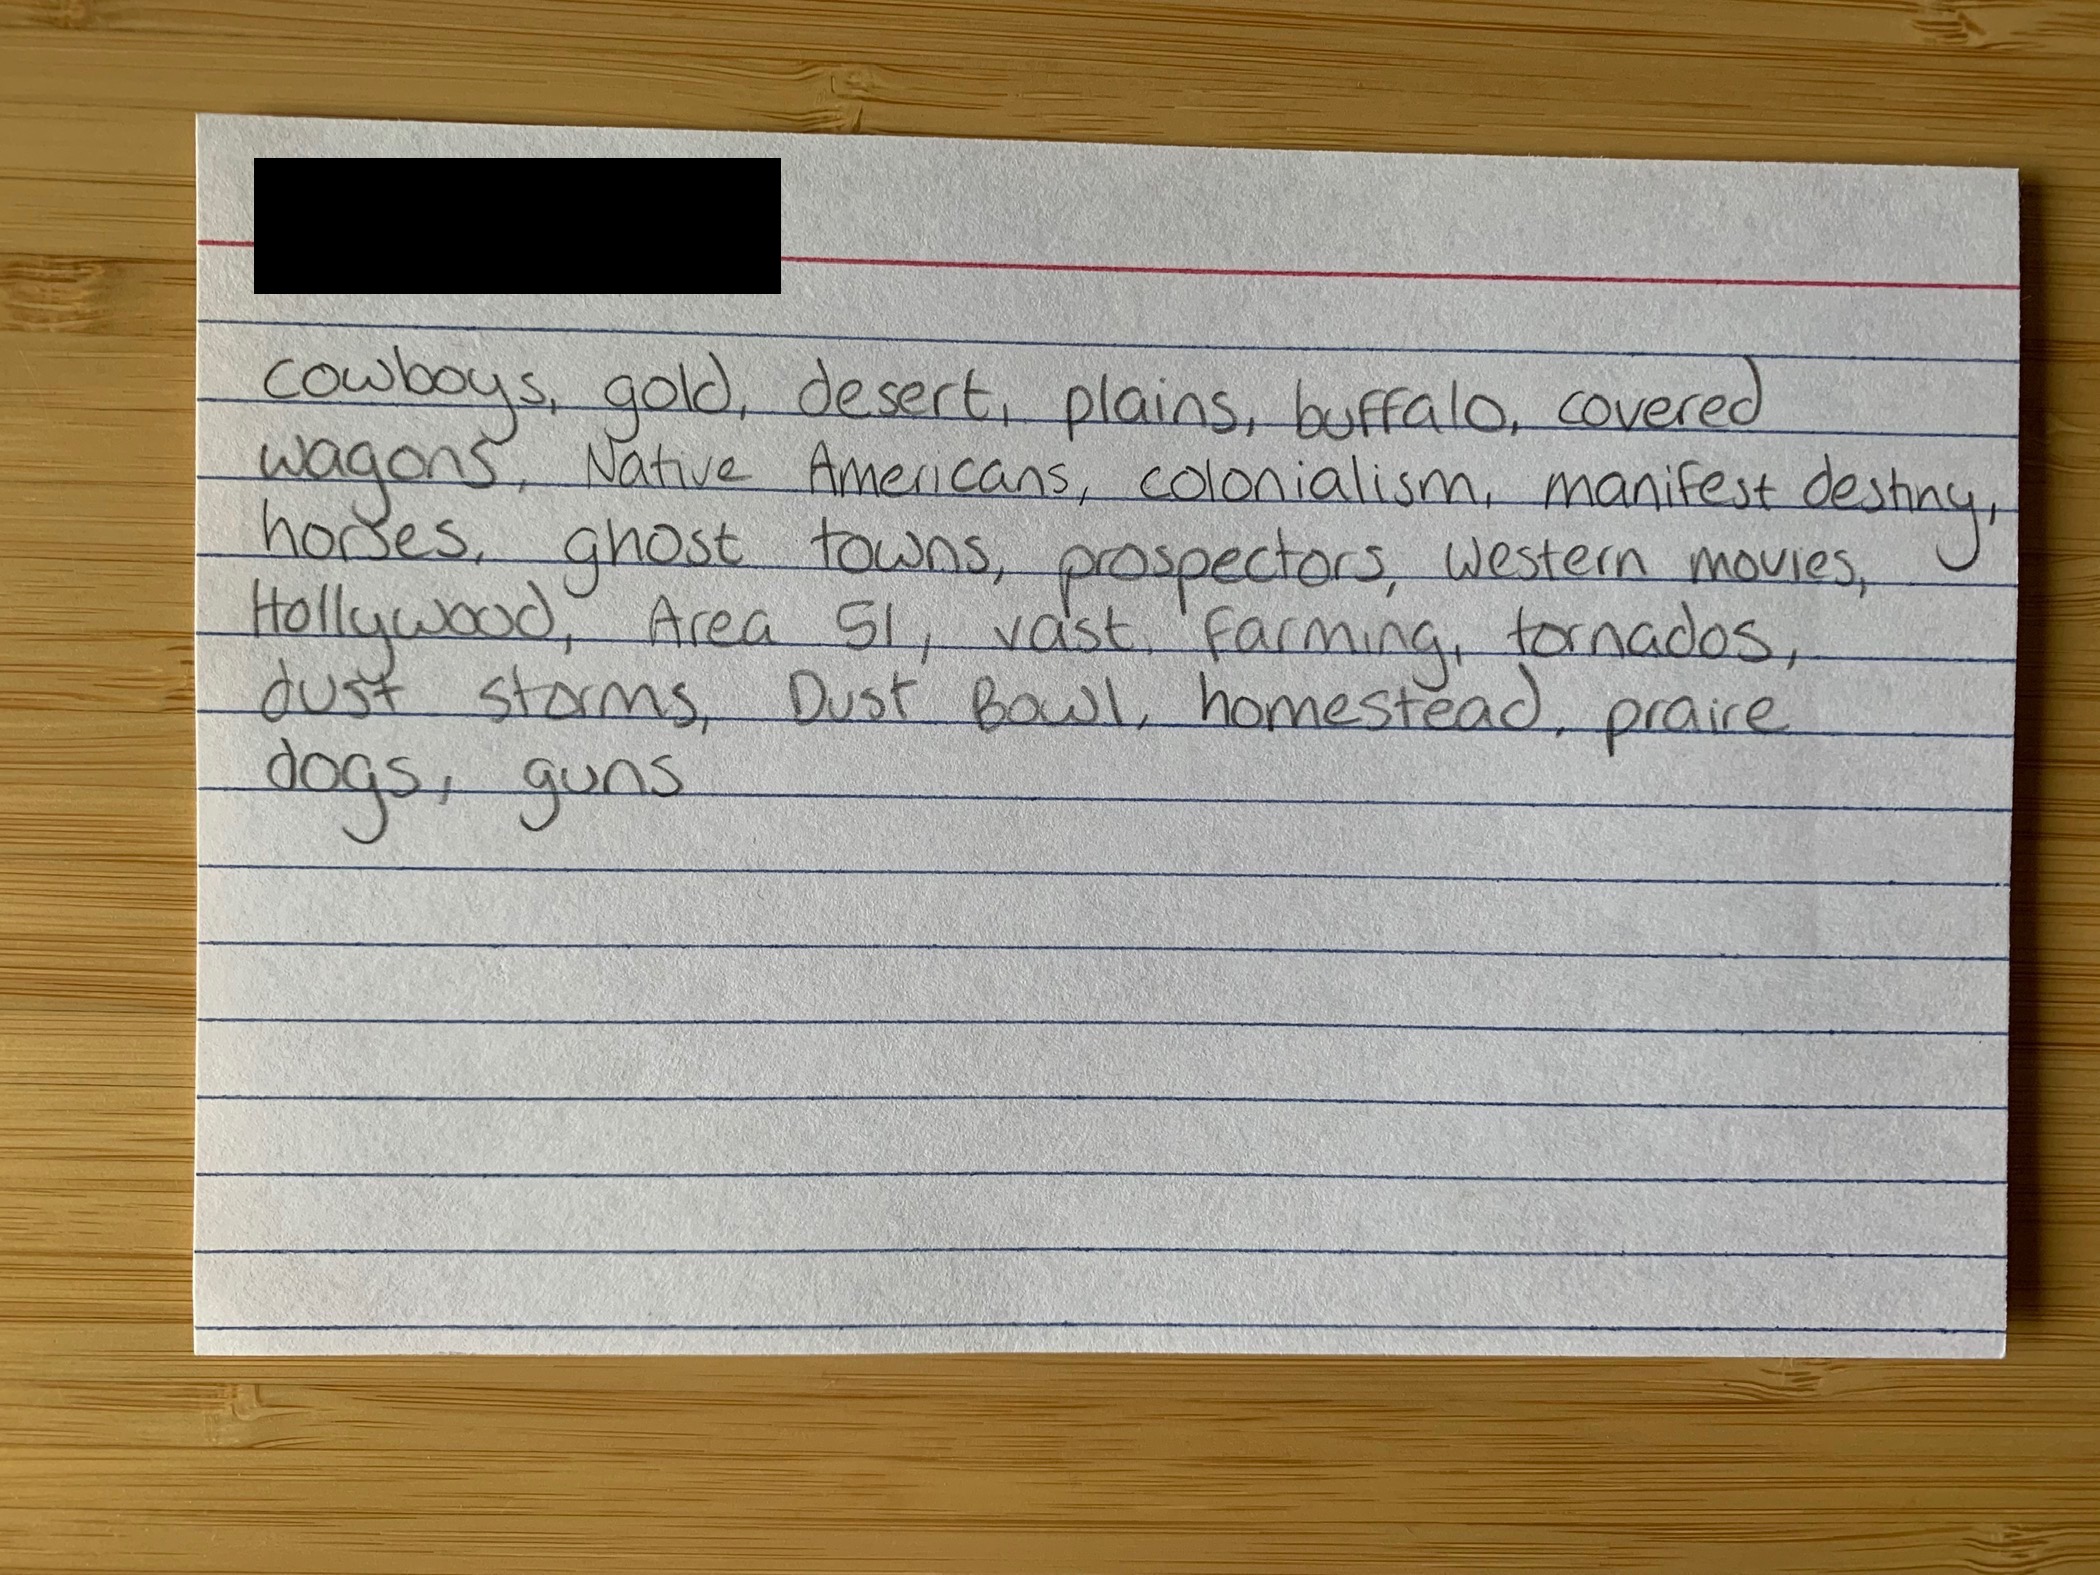 cowboys, gold, desert, plains, buffalo, covered
wagons, Native Americans, colonialism, manifest destiny,
horses, ghost towns, prospectors, Western movies,
Hollywood, Area 51, vast, farming, tornados,
dust storms, Dust Bowl, homestead, praire
dogs, guns